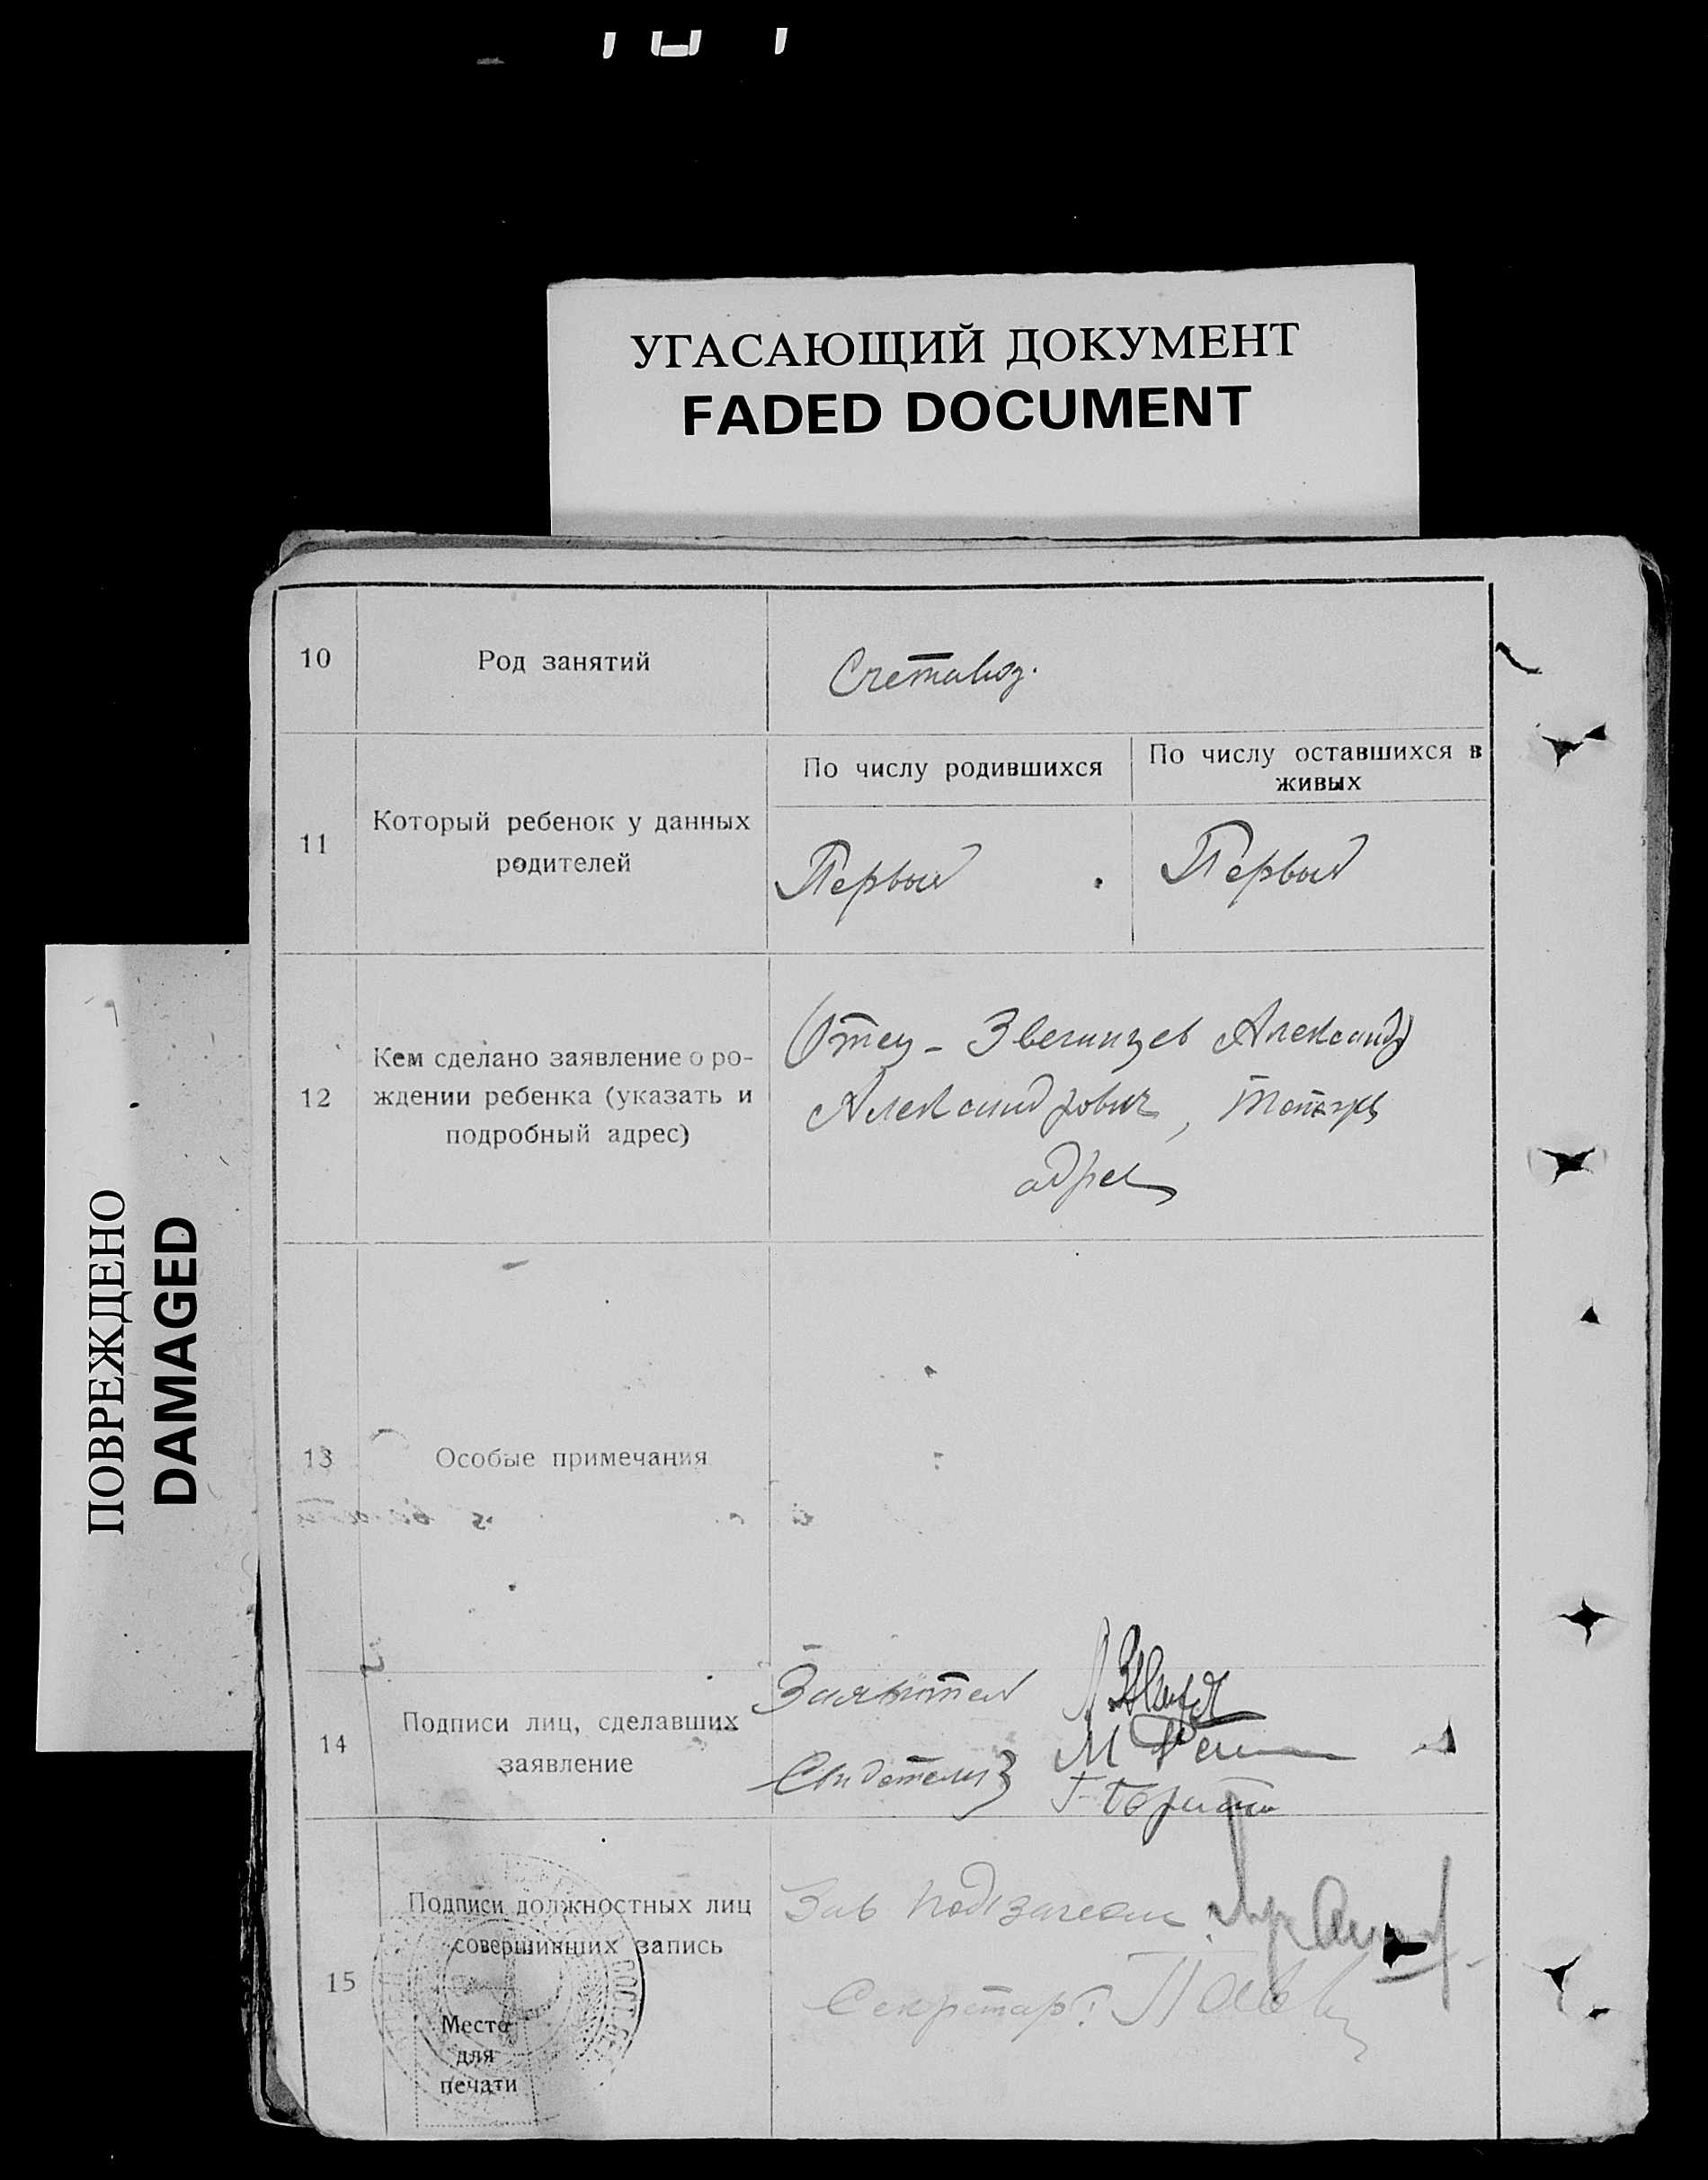 УГАСАЮЩИЙ ДОКУМЕНТ
FADED DOCUMENT
ПОВРЕЖДЕНО
DAMAGED
10
Род занятий
Счетовод.
11
Который ребенок у данных
родителей
По числу родившихся
Первый
По числу оставшихся в
живых
Первый
12
Кем сделано заявление о ро-
ждении ребенка (указать и
подробный адрес)
Отец - Звегинцев Александр
Александрович,
адрес
13
Особые примечания
14
Подписи лиц, сделавших
заявление
Заявител
Свидетели
15
Подписи должностных лиц
совершивших запись
Место
для
печати
Зав
Секретарь: